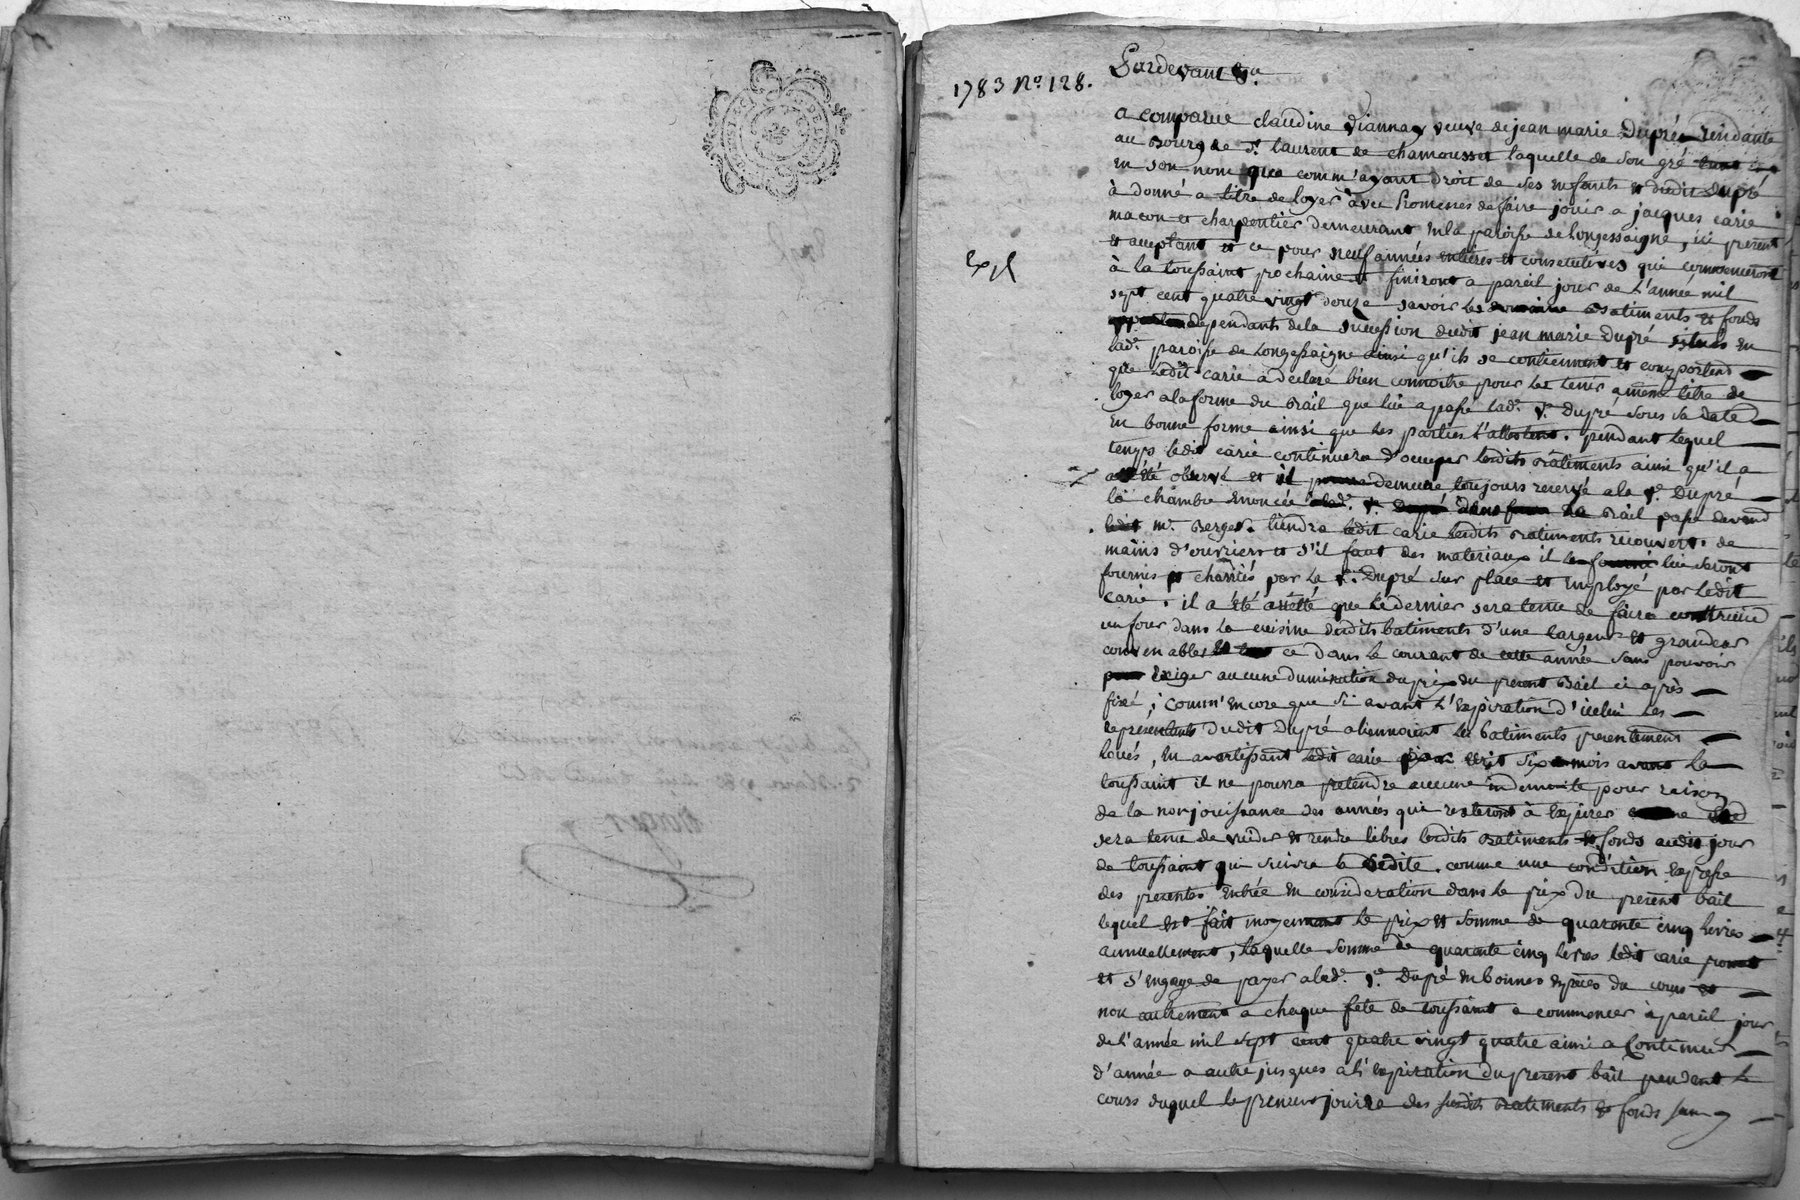 1783 No. 128.
Pardevant &a.
a comparue claudine viannay veuve de jean marie Dupré Residante
au Bourg de St. laurent de chamousset laquelle de son gré tant
en son nom que comm'ayant droit de ses enfants et dudit Dupré
à donné a titre de loyer avec Promesses de faire jouir a jacques carie
macon et charpentier demeurant en la paroisse de longessaigne, ici present
et acceptant et ce pour neuf années entieres et consecutives qui commenceront
à la toussaint prochaine et finiront a pareil jour de l'année mil
sept cent quatre vingt douze savoir les Batiments et fonds
dependants de la succession dudit jean marie Dupré situés en
lade. paroisse de Longessaigne ainsi qu'ils se contiennent et comportent
que ledit carie a declaré bien connoitre pour les tenir a même titre de
loyer a la forme du Bail que lui a passé lade. ve. Dupré sous sa date
en bonne forme ainsi que les parties l'attestent. pendant lequel
temps ledit carie continuera d'occuper lesdits Batiments ainsi qu'il a
été observé et il demeure toujours reservé a la ve. Dupré
la chambre enoncée Bail passé devant
me. Berger. tiendra ledit carie lesdits Batiments recouverts de
mains d'ouvriers et s'il faut des materiaux il lui seront
fournis et charriés par la ve. Dupré sur place et employé par ledit
carie. il a été arrêté que ledernier sera tenu de faire construire
un four dans la cuisine desdits batiments d'une largeur et grandeur
convenables ce dans le courant de cette année sans pouvoir
exiger aucune diminution du prix du present Bail ci après
fixé; comm'encore que si avant l'expiration d'icelui les
représentants dudit Dupré aliennoient les batiments presentement
loués, en avertissant ledit carie six mois avant la
toussaint il ne pourra pretendre aucune indemnité pour raison
de la non jouissance des années qui resteront à expirer
sera tenu de vuider et rendre libres lesdits Batiments et fonds audit jour
de toussaint qui suivra le dedite. comme une condition expresse
des presentes entrée en consideration dans le prix du present bail
lequel est fait moyennant le prix et somme de quarante cinq livres
annuellement, laquelle somme de quarante cinq livres ledit carie promet
et s'engage de payer a lade. ve. Dupré en bonnes especes du cours et
non autrement a chaque fete de toussaint a commencer à pareil jour
de l'année mil sept cent quatre vingt quatre ainsi a continuer
d'année a autre jusques à l'expiration du present bail pendant le
cours duquel le preneur jouira des susdits Batiments et fonds